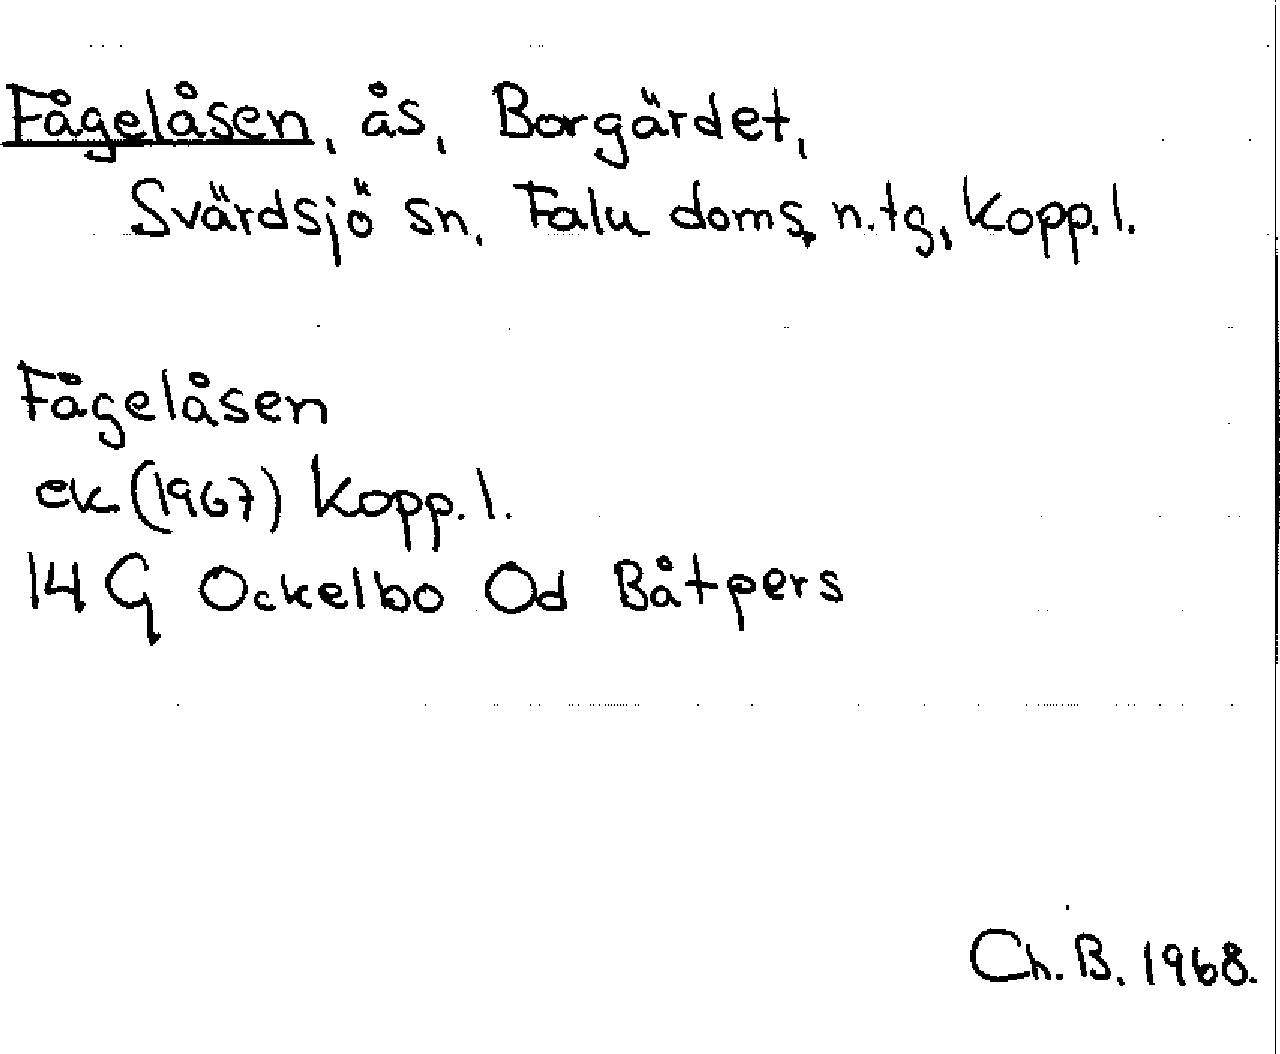 Fågelåsen, ås, Borgärdet,
Svärdsjö sn, Falu doms. n.tg, Kopp. l.
Fågelåsen
ek (1967) Kopp. l.
14 G Ockelbo Od Båtpers
Ch. B. 1968.